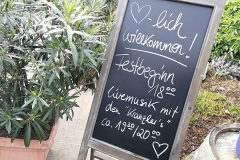 ♡-lich
willkommen!
Festbeginn
18⁰⁰
Livemusik mit
den "Kranzler's"
ca. 19³⁰/20⁰⁰